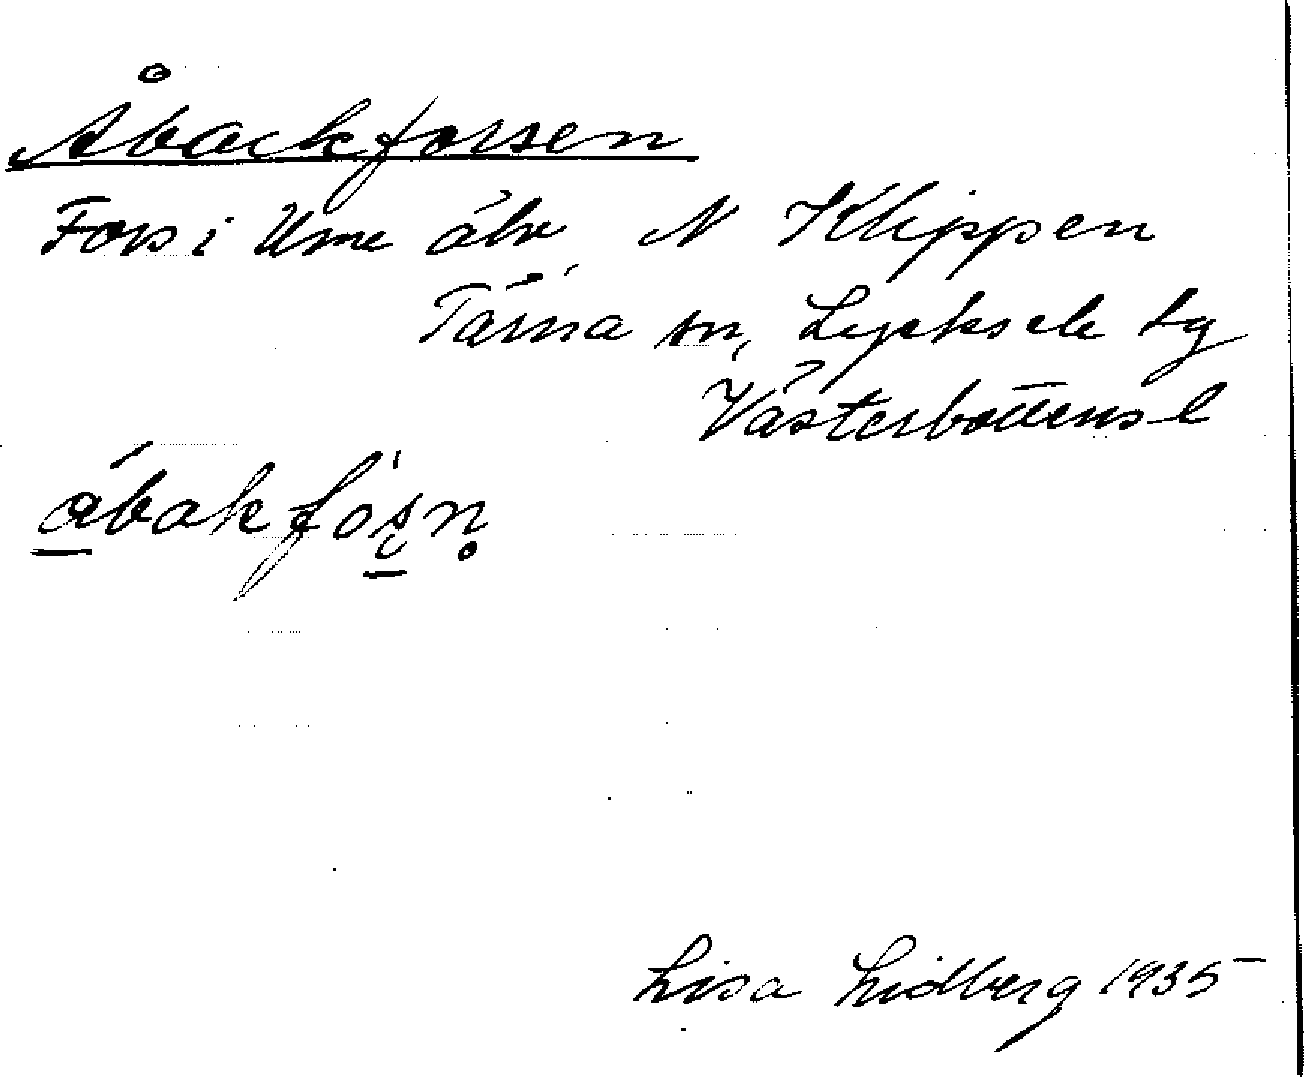 Åbackforsen
Fors i Ume älv, N Klippen
Tärna sn, Lycksele lg
Västerbottens l
åbakfósn̥
Lisa Lidberg 1935